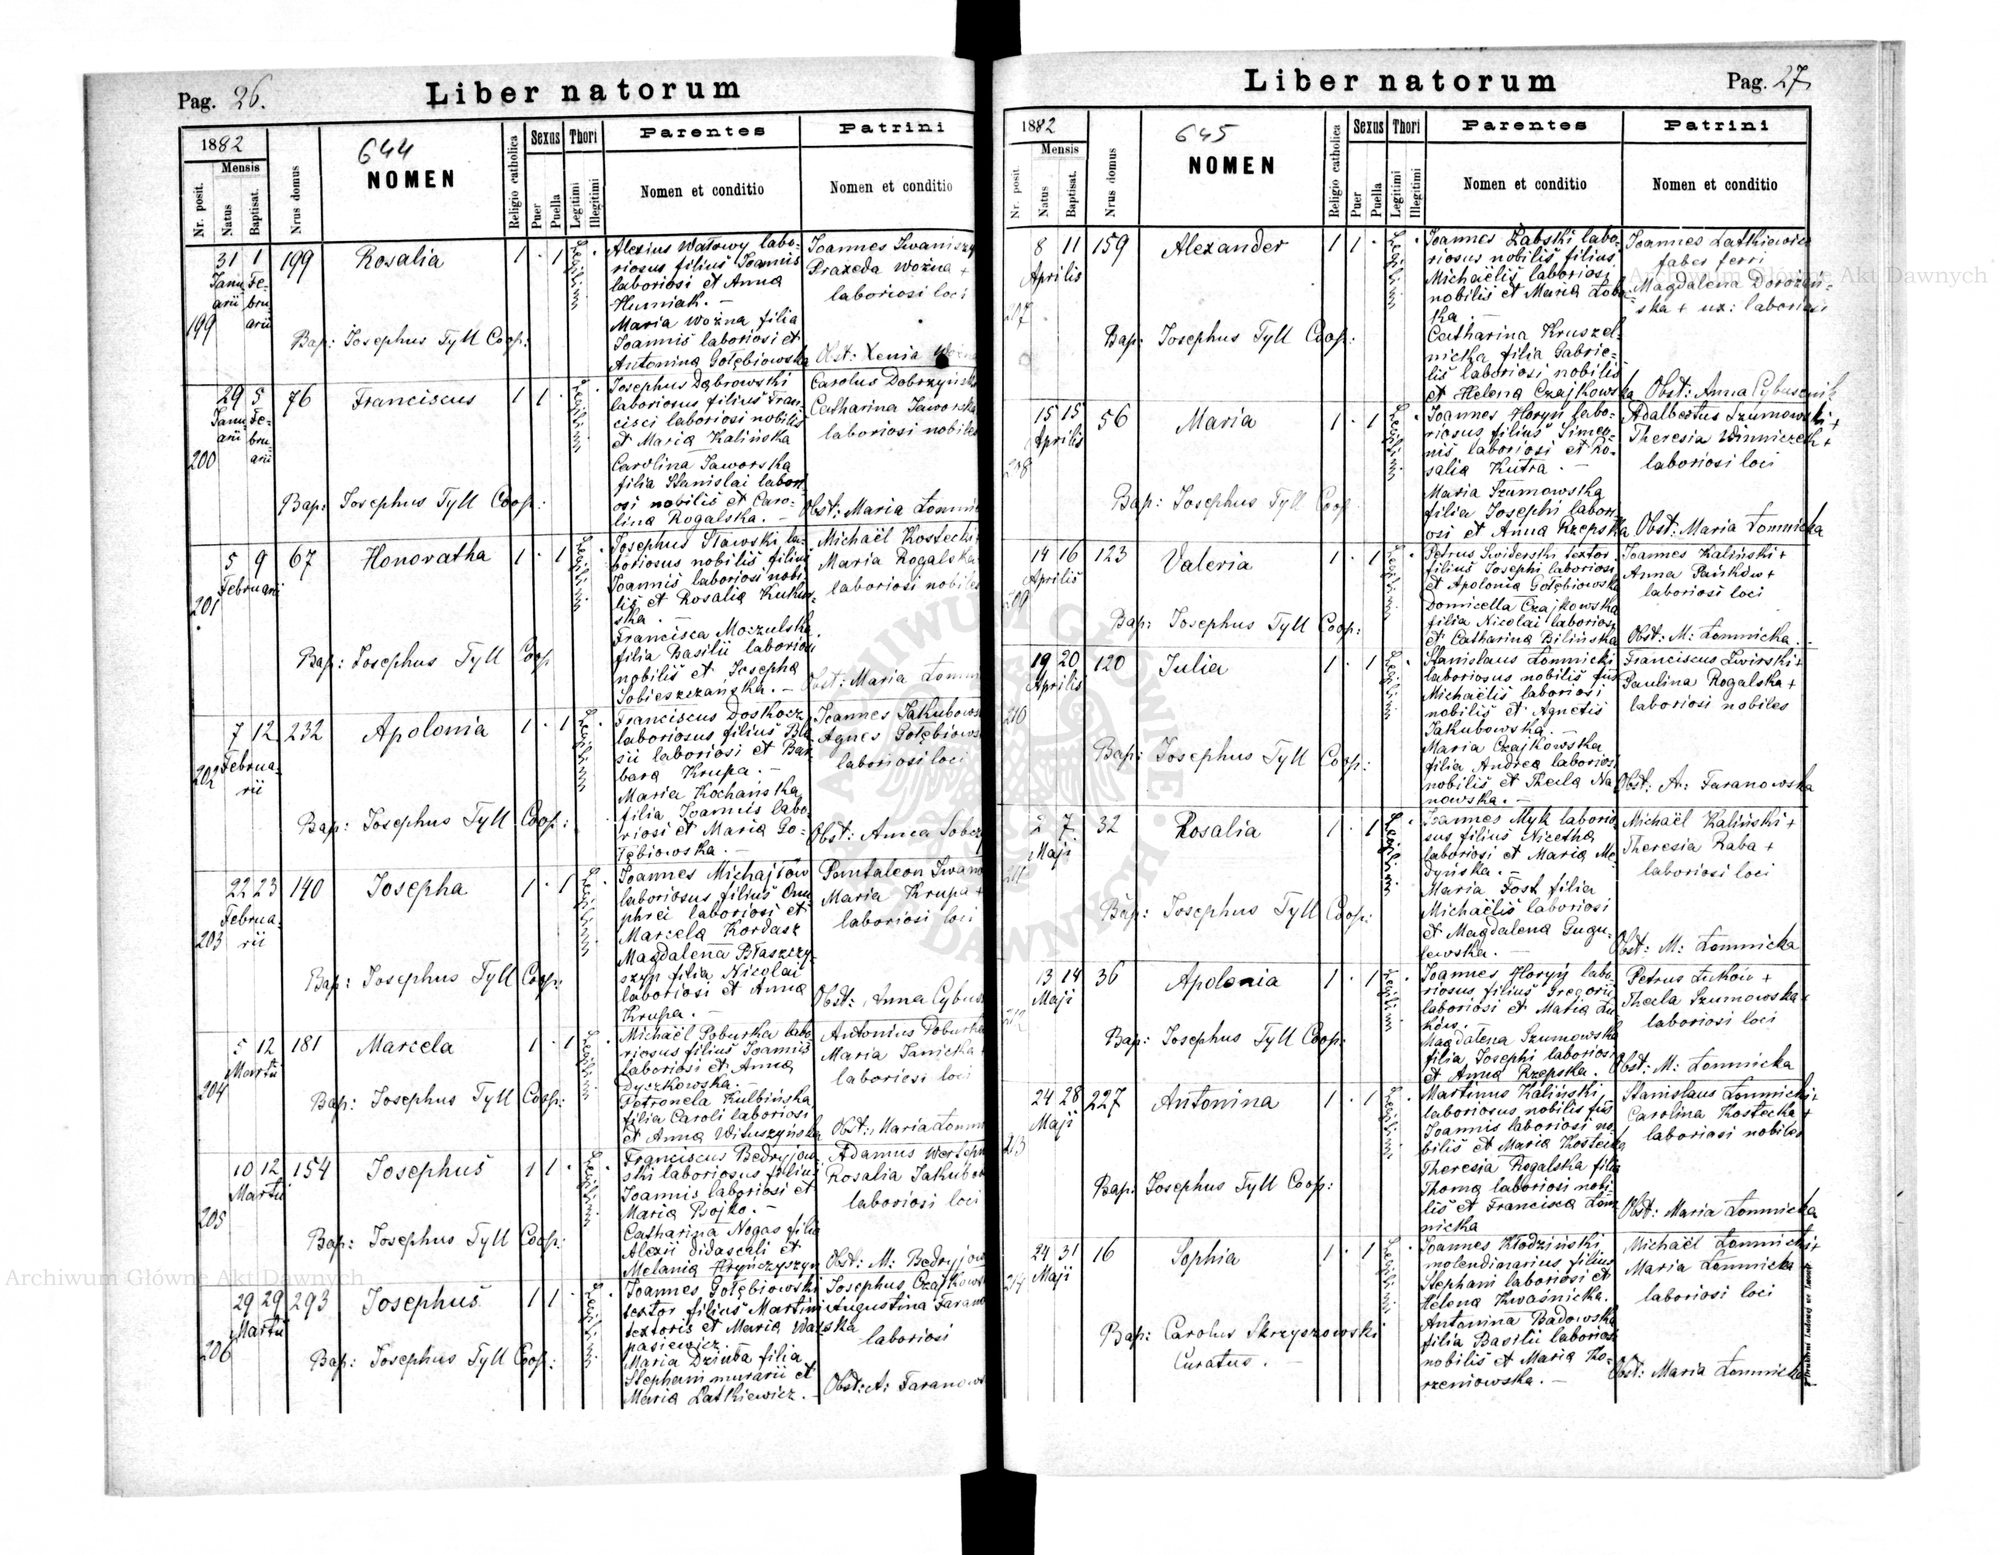 Pag. 26.
Liber natorum
1882
Mensis
Nr. posit.
Natus
Baptisat.
Nrus domus
644
NOMEN
Religio catholica
Sexus
Puer
Puella
Thori
Legitimi
Illegitimi
Parentes
Nomen et conditio
Patrini
Nomen et conditio
199
31 1
Janu- Fe-
arii bru
arii
199
Rosalia
1 · 1
Legitimi
Alexius Watowy labo-
riosus filius Joannis
laboriosi et Anna
Humiak. —
Maria Woźna filia
Joannis laboriosi et
Antonina Gołębiowska
Joannes
Praxeda Woźna +
laboriosi loci
Obst: Xenia
Bap: Josephus Tyll Coop:
200
29 5
Janu- Fe-
arii bru
arii
76
Franciscus
1 1 ·
Legitimi
Josephus Dąbrowski
laboriosus filius Fran-
cisci laboriosi nobilis
et Maria Kalińska
Carolina Jaworska
filia Stanislai labori
osi nobilis et Caro-
lina Rogalska. —
Carolus
Catharina Jaworska
laboriosi nobiles
Obst: Maria
Bap: Josephus Tyll Coop:
201
5 9
Februarii
67
Honoratha
1 · 1
Legitimi
Josephus Stawski la-
boriosus nobilis filius
Joannis laboriosi nobi
lis et Rosalia
ska. —
Francisca Moczulska
filia Basilii laboriosi
nobilis et Josepha
Sobieszczańska. —
Michaël Kostecki
Maria Rogalska
laboriosi nobiles
Obst: Maria
Bap: Josephus Tyll Coop
202
7 12
Februa-
rii
232
Apolonia
1 · 1
Legitimi
Franciscus Doskocz
laboriosus filius Bla
sii laboriosi et Bar
bara Krupa. —
Maria Kochańska
filia Joannis labo
riosi et Maria Go-
łębiowska. —
Joannes
Agnes
laboriosi loci
Obst: Anna
Bap: Josephus Tyll Coop:
203
22 23
Februa-
rii
140
Josepha
1 · 1
Legitimi
Joannes Michajłow
laboriosus filius Onu
phrei laboriosi et
Marcela Kordasz
Magdalena Błaszczy-
szyn filia Nicolai
laboriosi et Anna
Krupa. —
Pantaleon
Maria Krupa +
laboriosi loci
Obst: Anna
Bap: Josephus Tyll Coop:
204
5 12
Martii
181
Marcela
1 · 1
Legitimi
Michaël Poburka labo
riosus filius Joannis
laboriosi et Anna
Dyszkowska. —
Petronela Kulbińska
filia Caroli laboriosi
et Anna Wituszyńska
Antonius
Maria Janicka
laboriosi loci
Obst: Maria
Bap: Josephus Tyll Coop:
205
10 12
Martii
154
Josephus
1 1 ·
Legitimi
Franciscus Bedryjow-
ski laboriosus filius
Joannis laboriosi et
Maria Bojko. —
Catharina Nogas filia
Alexii didascali et
Melania Hryńczyszyn
Adamus
Rosalia
laboriosi loci
Obst: M:
Bap: Josephus Tyll Coop:
206
29 29
Martii
293
Josephus
1 1 ·
Legitimi
Joannes Gołębiowski
textor filius Martini
textoris et Maria
pasiewicz. —
Maria Dziuba filia
Stephani murarii et
Maria Latkiewicz. —
Josephus
Augustina
laboriosi
Obst: A:
Bap: Josephus Tyll Coop:
Pag. 27
Liber natorum
1882
Mensis
Nr. posit.
Natus
Baptisat.
Nrus domus
645
NOMEN
Religio catholica
Sexus
Puer
Puella
Thori
Legitimi
Illegitimi
Parentes
Nomen et conditio
Patrini
Nomen et conditio
207
8 11
Aprilis
159
Alexander
1 1 ·
Legitimi
Joannes Żabski labo-
riosus nobilis filius
Michaëlis laboriosi
nobilis et Maria
ka. —
Catharina Kruszel-
nicka filia Gabrie-
lis laboriosi nobilis
et Helena Czajkowska
Joannes Latkiewicz
faber ferri
Magdalena
ska + ux: laboriosi
Obst: Anna
Bap: Josephus Tyll Coop:
208
15 15
Aprilis
56
Maria
1 · 1
Legitimi
Joannes Horyń labo-
riosus filius Simeo-
nis laboriosi et Ro-
salia Kutra. —
Maria Szumowska
filia Josephi labori-
osi et Anna Rzepska
Adalbertus Szumowski +
Theresia Winniczek +
laboriosi loci
Obst: Maria Łomnicka
Bap: Josephus Tyll Coop
209
14 16
Aprilis
123
Valeria
1 · 1
Legitimi
Petrus Świderski textor
filius Josephi laboriosi
et Apolonia Gołębiowska
Domicella Czajkowska
filia Nicolai laboriosi
et Catharina Bilińska
Joannes Kaliński +
Anna Pańków +
laboriosi loci
Obst: M: Łomnicka. —
Bap: Josephus Tyll Coop:
210
19 20
Aprilis
120
Julia
1 · 1
Legitimi
Stanislaus Łomnicki
laboriosus nobilis fus
Michaëlis laboriosi
nobilis et Agnetis
Jakubowska. —
Maria Czajkowska
filia Andrea laboriosi
nobilis et Thecla Na
nowska. —
Franciscus Żwirski +
Paulina Rogalska +
laboriosi nobiles
Obst: A: Taranowska
Bap: Josephus Tyll Coop:
211
2 7
Maji
32
Rosalia
1 · 1
Legitimi
Joannes Myk laborio
sus filius Nicetha
laboriosi et Maria Me
dyńska. —
Maria Fost filia
Michaëlis laboriosi
et Magdalena Gugu-
lewska. —
Michaël Kaliński +
Theresia Kaba +
laboriosi loci
Obst: M: Łomnicka
Bap: Josephus Tyll Coop:
212
13 14
Maji
36
Apolonia
1 · 1
Legitimi
Joannes Horyń labo
riosus filius Gregorii
laboriosi et Maria Łu
ków. —
Magdalena Szumowska
filia Josephi laboriosi
et Anna Rzepska. —
Petrus Łuków +
Thecla Szumowska +
laboriosi loci
Obst: M: Łomnicka
Bap: Josephus Tyll Coop:
213
24 28
Maji
227
Antonina
1 · 1
Legitimi
Martinus Kaliński
laboriosus nobilis fus
Joannis laboriosi no
bilis et Maria Kostecka
Theresia Rogalska filia
Thoma laboriosi nobi
lis et Francisca Łom
nicka
Stanislaus Łomnicki +
Carolina Kostecka +
laboriosi nobiles
Obst: Maria Łomnicka
Bap: Josephus Tyll Coop:
214
24 31
Maji
16
Sophia
1 · 1
Legitimi
Joannes Kłodziński
molendinarius filius
Stephani laboriosi et
Helena Kwaśnicka.
Antonina Badowska
filia Basilii laboriosi
nobilis et Maria Ko-
rzeniowska. —
Michaël Łomnicki +
Maria Łomnicka +
laboriosi loci
Obst: Maria Łomnicka
Bap: Carolus Skrzyszowski
Curatus. —
Archiwum Główne Akt Dawnych
Archiwum Główne Akt Dawnych
ARCHIWUM GŁÓWNE AKT DAWNYCH